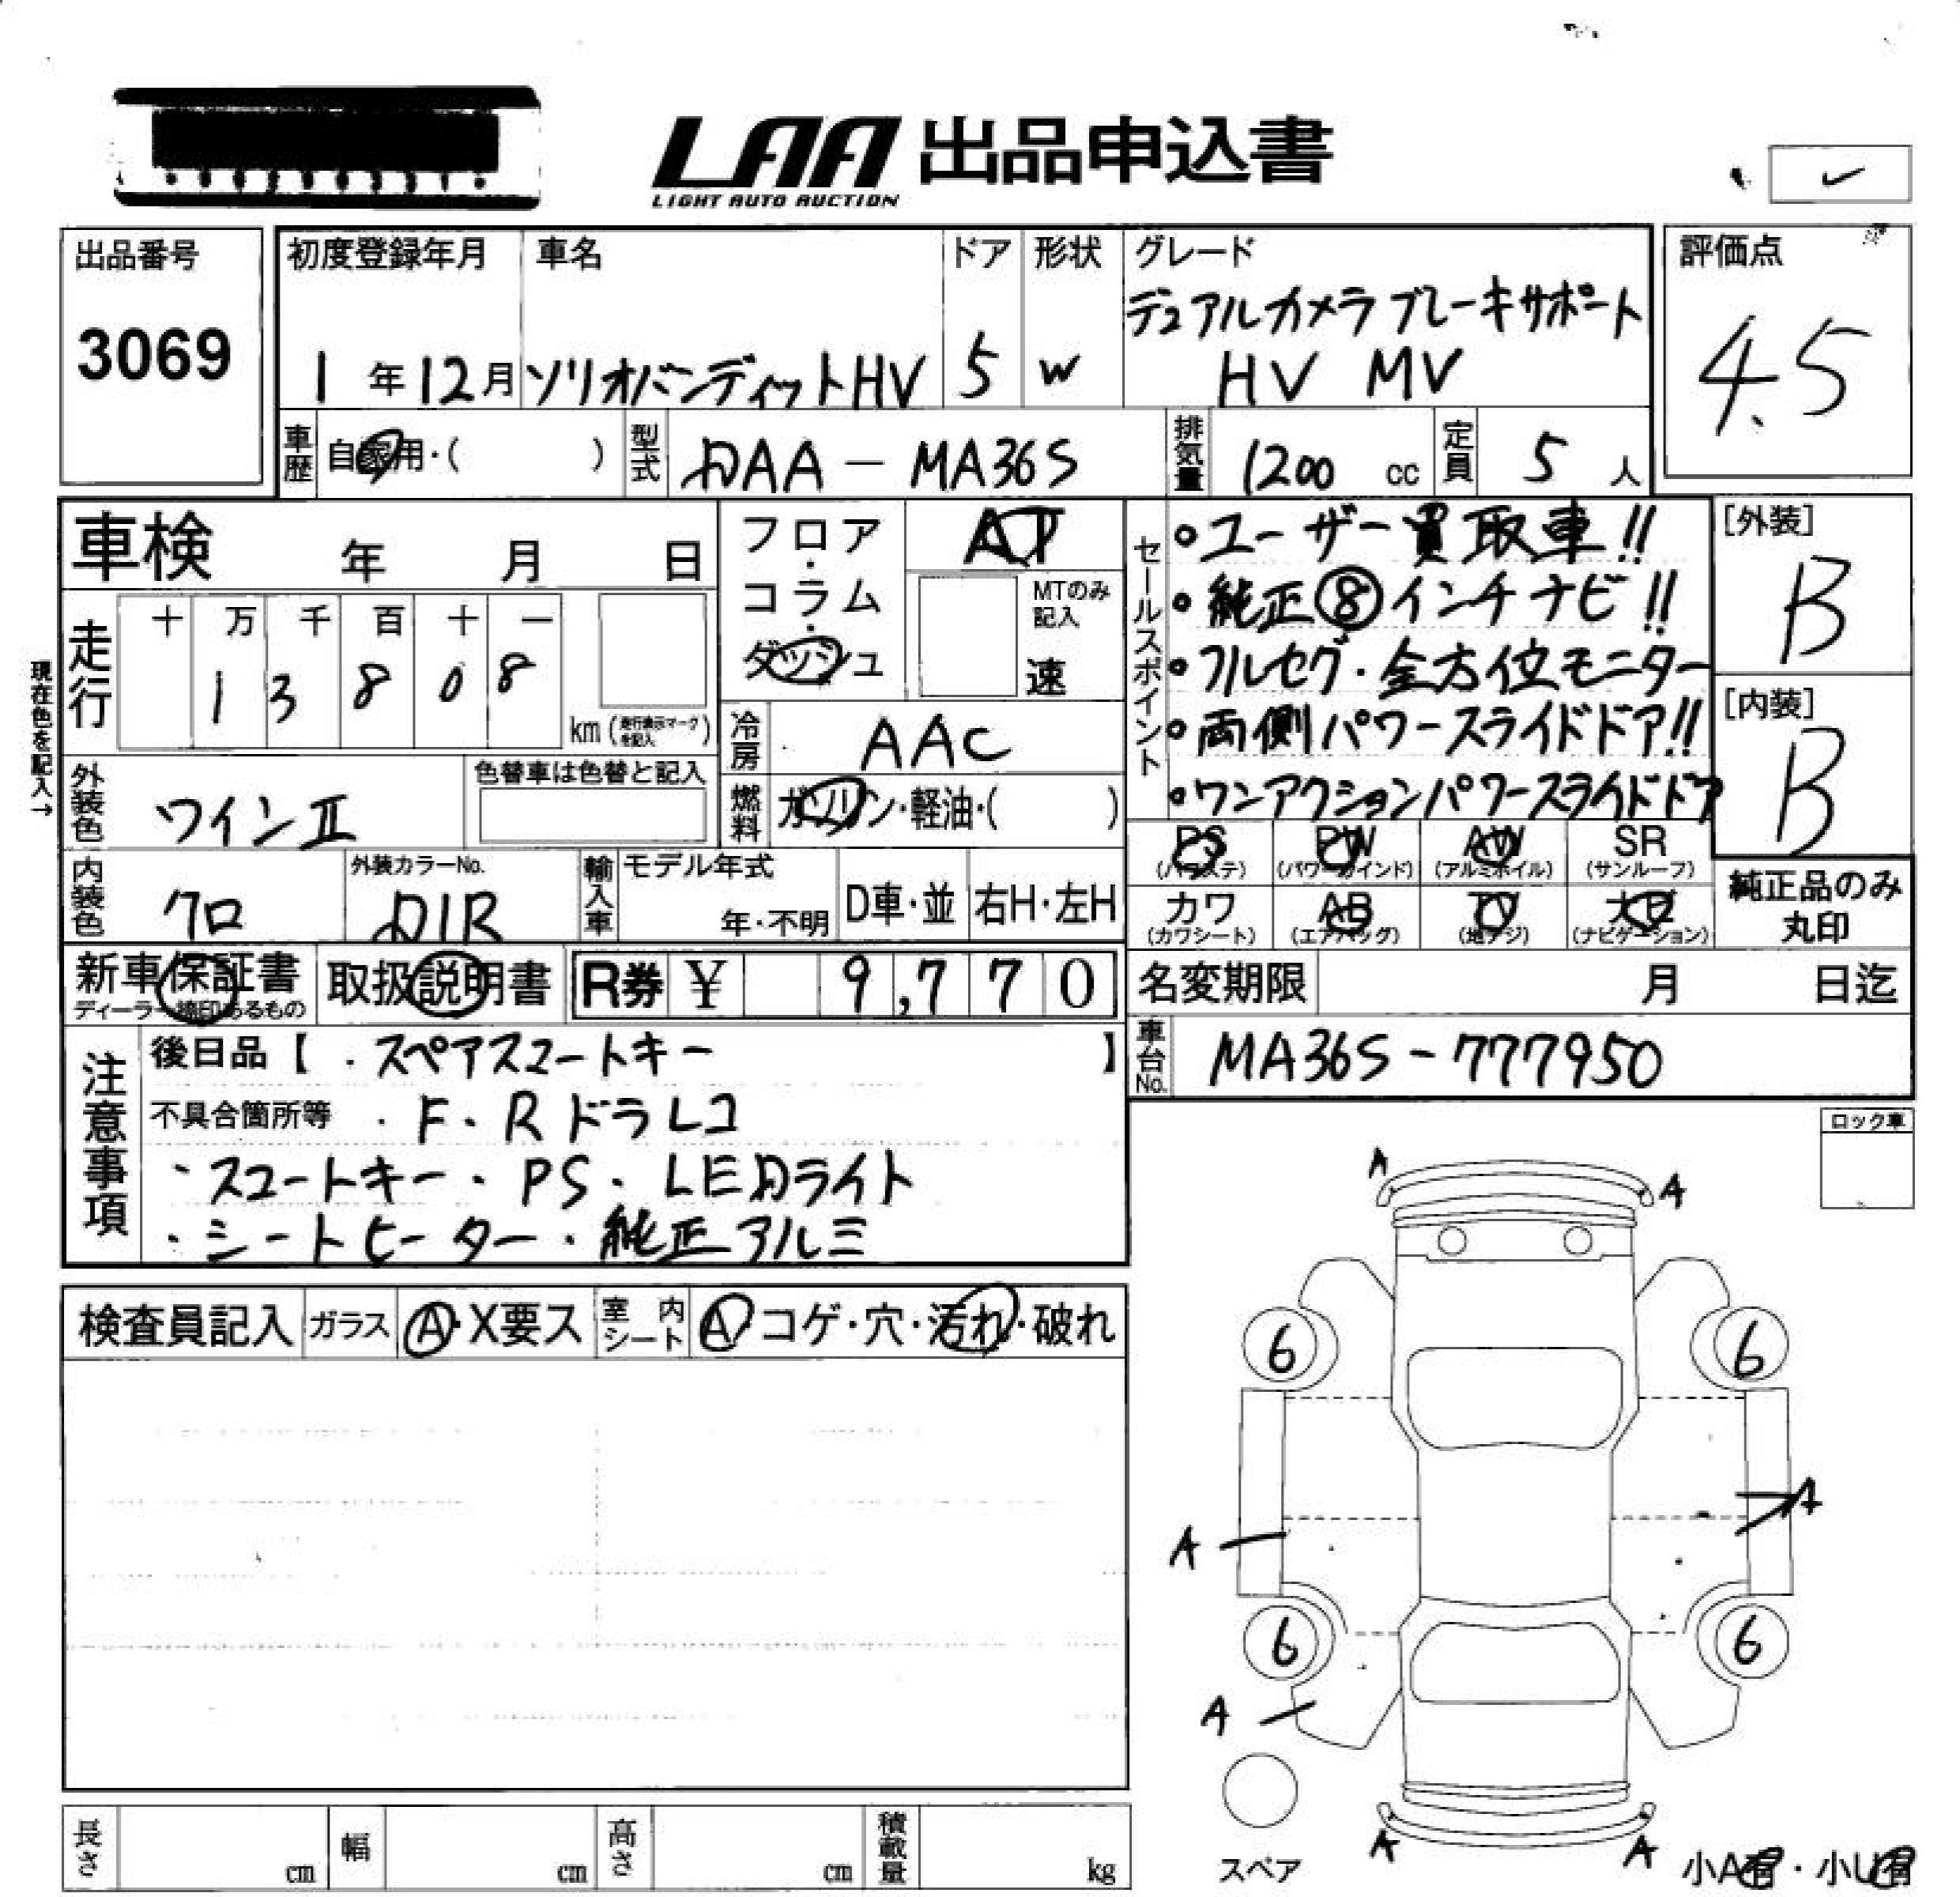 LAA 出品申込書
LIGHT AUTO AUCTION
出品番号
3069
初度登録年月
1年12月
車名
ソリオバンディットHV
ドア
5
形状
W
グレード
デュアルカメラブレーキサポート
HV MV
評価点
4.5
車歴
自家用・( )
型式
DAA-MA36S
排気量
1200 cc
定員
5人
車検 年 月 日
フロア・コラム・ダッシュ
AT
MTのみ記入
速
セールスポイント
・ユーザー買取車!!
・純正⑧インチナビ!!
・フルセグ・全方位モニター
・両側パワースライドドア!!
・ワンアクションパワースライドドア
[外装]
B
[内装]
B
現在色を記入→
走行
十 万 千 百 十 一
1 3 8 0 8
km(走行表示マークを記入)
冷房
AAC
外装色
ワインⅡ
色替車は色替と記入
燃料
ガソリン・軽油・( )
PS (パワステ)
PW (パワーウインド)
AW (アルミホイル)
SR (サンルーフ)
カワ (カワシート)
AB (エアバッグ)
TV (地デジ)
ナビ (ナビゲーション)
純正品のみ
丸印
内装色
クロ
外装カラーNo.
D1R
輸入車
モデル年式
年・不明
D車・並
右H・左H
新車保証書
ディーラー捺印あるもの
取扱説明書
R券 ¥ 9,770
名変期限 月 日迄
車台No.
MA36S-777950
注意事項
後日品【・スペアスマートキー】
不具合箇所等 ・F・Rドラレコ
・スマートキー・PS・LEDライト
・シートヒーター・純正アルミ
ロック車
検査員記入
ガラス
A・X要ス
室内シート
A・コゲ・穴・汚れ・破れ
A A
6 6
A A
6 6
A
A A
スペア
小A有・小U有
長さ cm
幅 cm
高さ cm
積載量 kg